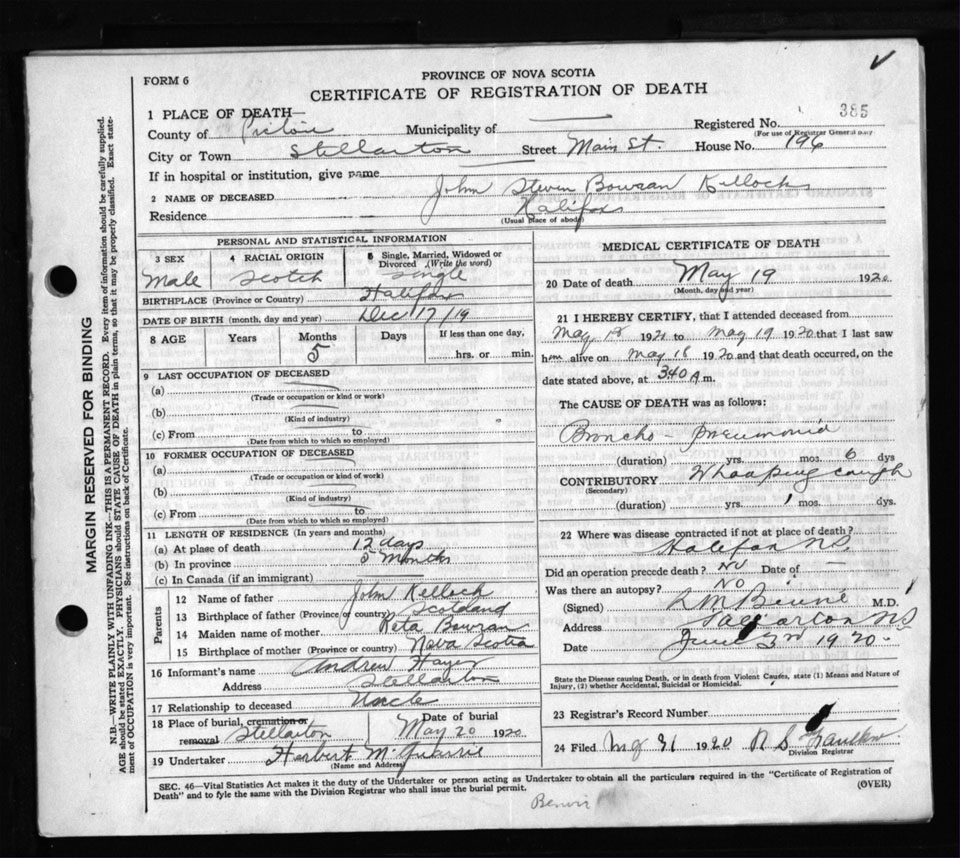 FORM 6
PROVINCE OF NOVA SCOTIA
CERTIFICATE OF REGISTRATION OF DEATH
1 PLACE OF DEATH—
Registered No. 385
(For use of Registrar General only)
County of Pictou Municipality of
City or Town Stellarton Street Main St. House No. 196
If in hospital or institution, give name
2 NAME OF DECEASED John Steven Bowran Kellock
Residence Halifax
(Usual place of abode)
PERSONAL AND STATISTICAL INFORMATION
3 SEX Male
4 RACIAL ORIGIN Scotch
5 Single, Married, Widowed or Divorced (Write the word) Single
BIRTHPLACE (Province or Country) Halifax
DATE OF BIRTH (month, day and year) Dec 17/19
8 AGE Years Months 5 Days If less than one day, hrs. or min.
9 LAST OCCUPATION OF DECEASED
(a)
(Trade or occupation or kind or work)
(b)
(Kind of industry)
(c) From to
(Date from which to which so employed)
10 FORMER OCCUPATION OF DECEASED
(a)
(Trade or occupation or kind of work)
(b)
(Kind of industry)
(c) From to
(Date from which to which so employed)
11 LENGTH OF RESIDENCE (In years and months)
(a) At place of death 12 days
(b) In province 5 months
(c) In Canada (if an immigrant)
Parents
12 Name of father John Kelloch
13 Birthplace of father (Province or country) Scotland
14 Maiden name of mother Reta Bowran
15 Birthplace of mother (Province or country) Nova Scotia
16 Informant's name Andrew Hayes
Address Stellarton
17 Relationship to deceased Uncle
18 Place of burial, cremation or removal Stellarton Date of burial May 20 1920
19 Undertaker Herbert McQuarrie
(Name and Address)
MEDICAL CERTIFICATE OF DEATH
20 Date of death May 19 1920
(Month, day and year)
21 I HEREBY CERTIFY, that I attended deceased from
May 1921 to May 19 1920 that I last saw
him alive on May 18 1920 and that death occurred, on the
date stated above, at 3.40 A m.
The CAUSE OF DEATH was as follows:
Broncho - Pneumonia
(duration) yrs. mos. 6 dys
CONTRIBUTORY Whooping cough
(Secondary)
(duration) yrs. 1 mos. dys.
22 Where was disease contracted if not at place of death?
Halifax N.S.
Did an operation precede death? No Date of —
Was there an autopsy? No
(Signed) M.D.
Address N.S.
Date June 3rd 1920
State the Disease causing Death, or in death from Violent Causes, state (1) Means and Nature of
Injury, (2) whether Accidental, Suicidal or Homicidal.
23 Registrar's Record Number
24 Filed 1920 R S
Division Registrar
SEC. 46—Vital Statistics Act makes it the duty of the Undertaker or person acting as Undertaker to obtain all the particulars required in the "Certificate of Registration of
Death" and to fyle the same with the Division Registrar who shall issue the burial permit.
(OVER)
MARGIN RESERVED FOR BINDING
N.B.—WRITE PLAINLY WITH UNFADING INK—THIS IS A PERMANENT RECORD. Every item of information should be carefully supplied.
AGE should be stated EXACTLY. PHYSICIANS should STATE CAUSE OF DEATH in plain terms, so that it may be properly classified. Exact statement of OCCUPATION is very important. See instructions on back of Certificate.